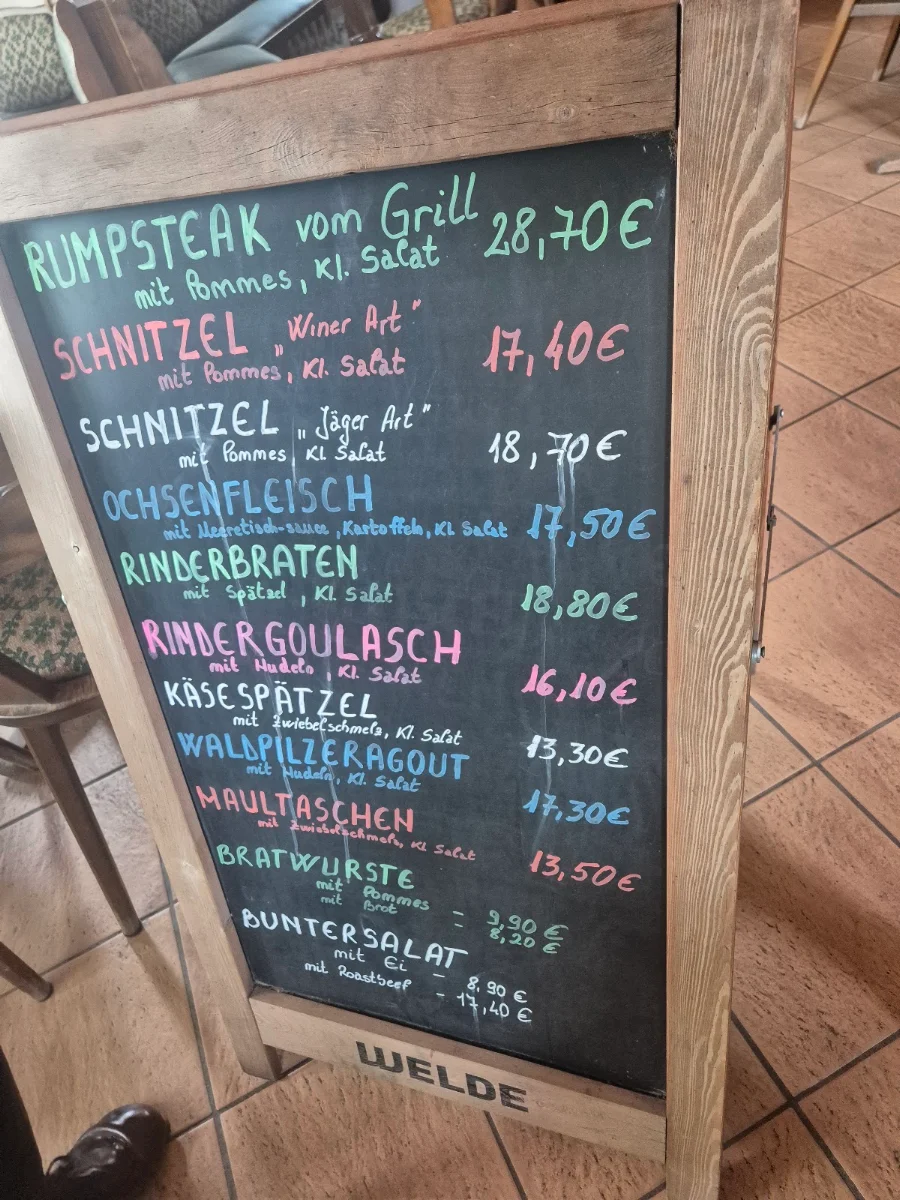 RUMPSTEAK vom Grill 28,70€
mit Pommes, Kl. Salat
SCHNITZEL „Winer Art" 17,40€
mit Pommes, Kl. Salat
SCHNITZEL „Jäger Art" 18,70€
mit Pommes Kl. Salat
OCHSENFLEISCH 17,50€
mit Meeretisch-sauce, Kartoffeln, Kl. Salat
RINDERBRATEN 18,80€
mit Spätzel, Kl. Salat
RINDERGOULASCH 16,10€
mit Nudeln, Kl. Salat
KÄSESPÄTZEL 13,30€
mit Zwiebelschmelz, Kl. Salat
WALDPILZERAGOUT 17,30€
mit Nudeln, Kl. Salat
MAULTASCHEN 13,50€
mit Zwiebelschmelz, Kl Salat
BRATWURSTE
mit Pommes - 9,90 €
mit Brot - 8,20 €
BUNTERSALAT
mit Ei - 8,90 €
mit Roastbeef - 17,40 €
WELDE